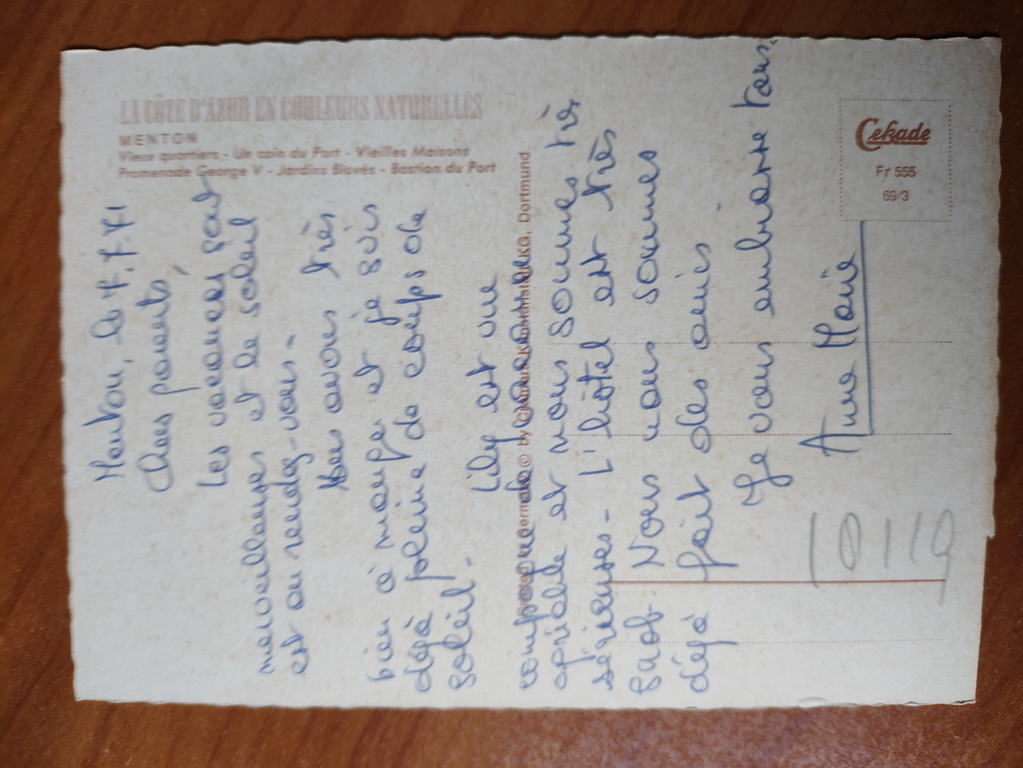 LA CÔTE D'AZUR EN COULEURS NATURELLES
MENTON
Vieux quartiers - Un coin du Port - Vieilles Maisons
Promenade George V - Jardins Biovès - Bastion du Port
Menton, le 7.7.71
Chers parents,
Les vacances sont
merveilleuses et le soleil
est au rendez-vous -
Nous avons très
bien à manger et je suis
déjà pleine de coups de
soleil.
Lily est une
compagne de vacances
agréable et nous sommes très
sérieuses - L'hôtel est très
beau. Nous nous sommes
déjà fait des amis
Je vous embrasse tous.
Anne Marie
Cekade
Fr 555
69/3
Dortmund
10119